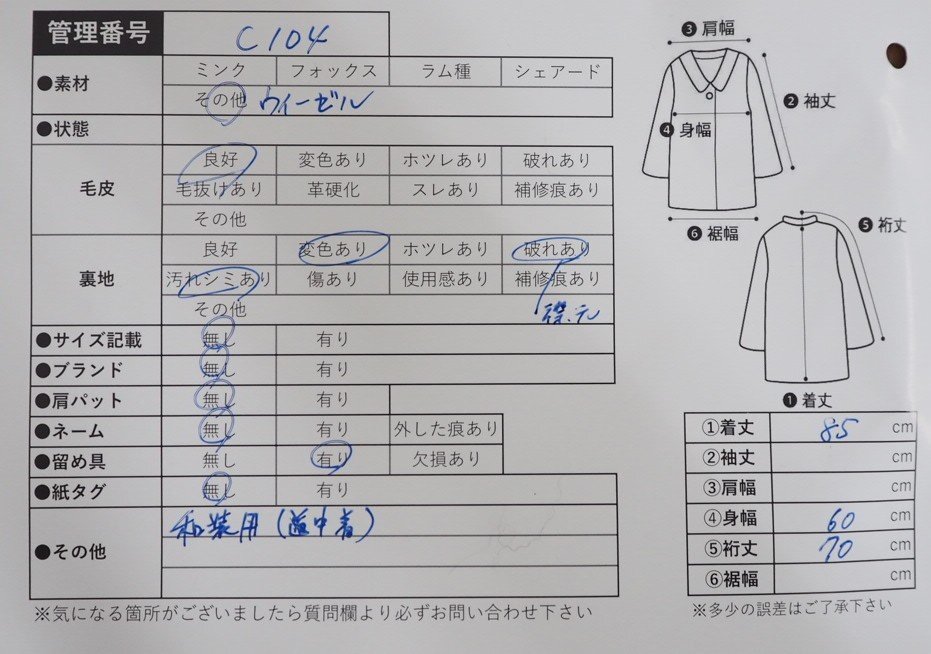 管理番号 C104
●素材 ミンク フォックス ラム種 シェアード
その他 ウィーゼル
●状態
毛皮 良好 変色あり ホツレあり 破れあり
毛抜けあり 革硬化 スレあり 補修痕あり
その他
裏地 良好 変色あり ホツレあり 破れあり
汚れシミあり 傷あり 使用感あり 補修痕あり
その他 襟元
●サイズ記載 無し 有り
●ブランド 無し 有り
●肩パット 無し 有り
●ネーム 無し 有り 外した痕あり
●留め具 無し 有り 欠損あり
●紙タグ 無し 有り
●その他 和装用(道中着)
※気になる箇所がございましたら質問欄より必ずお問い合わせ下さい
❸肩幅
❷袖丈
❹身幅
❻裾幅
❺裄丈
❶着丈
①着丈 85 cm
②袖丈 cm
③肩幅 cm
④身幅 60 cm
⑤裄丈 70 cm
⑥裾幅 cm
※多少の誤差はご了承下さい